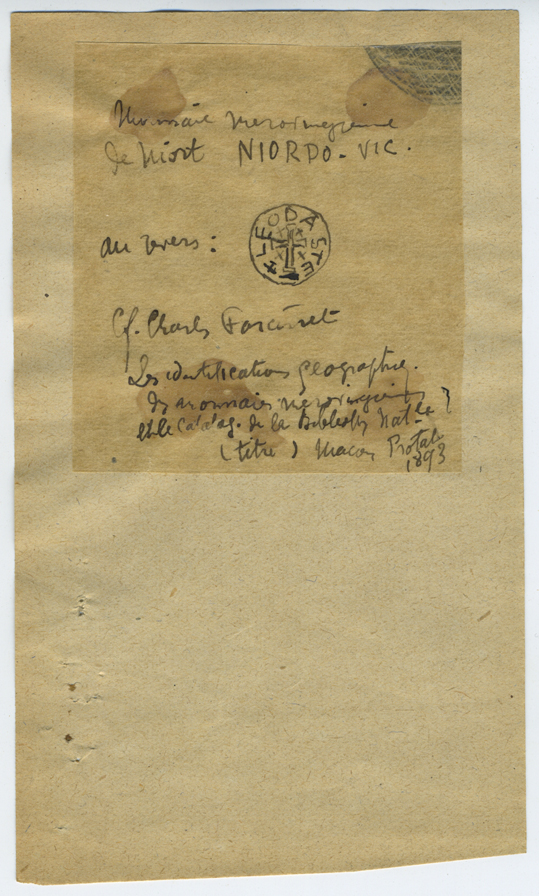 Monnaie merovingienne
de Niort NIORDO - VIC.
au revers :
+ LEODASTE
Cf. Charles Farcinet
Les identifications géographiq.
des monnaies merovingiennes
et le catalag. de la Biblioth. Natle
(titre) Macon, Protat
1893